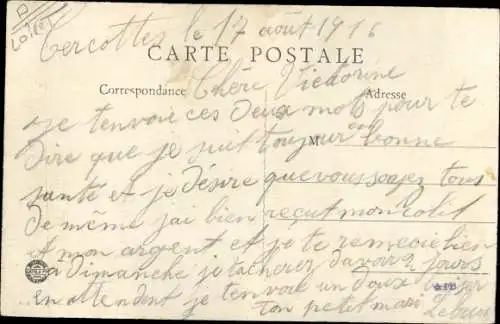 Cercottes le 17 août 1916
CARTE POSTALE
Correspondance
Adresse
Chère Victorine
je tenvoie ces deux mots pour te
dire que je suit toujour en bonne
M
santé et je désire que vous soyez tous
de même jai bien reçut mon colit
et mon argent et je te remercie bien
a Dimanche je tacherez davoir 2 jours
en attendent je tenvoie un doux
ton petit mari